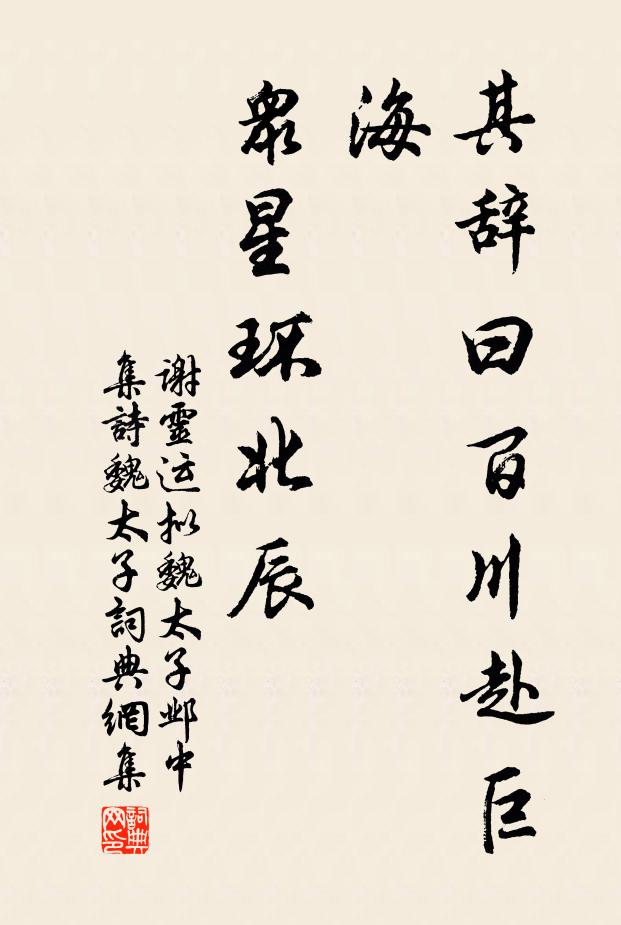 其辞曰百川赴巨
海
眾星环北辰
谢靈运拟魏太子邺中
集詩魏太子詞典網集
詞典
网印